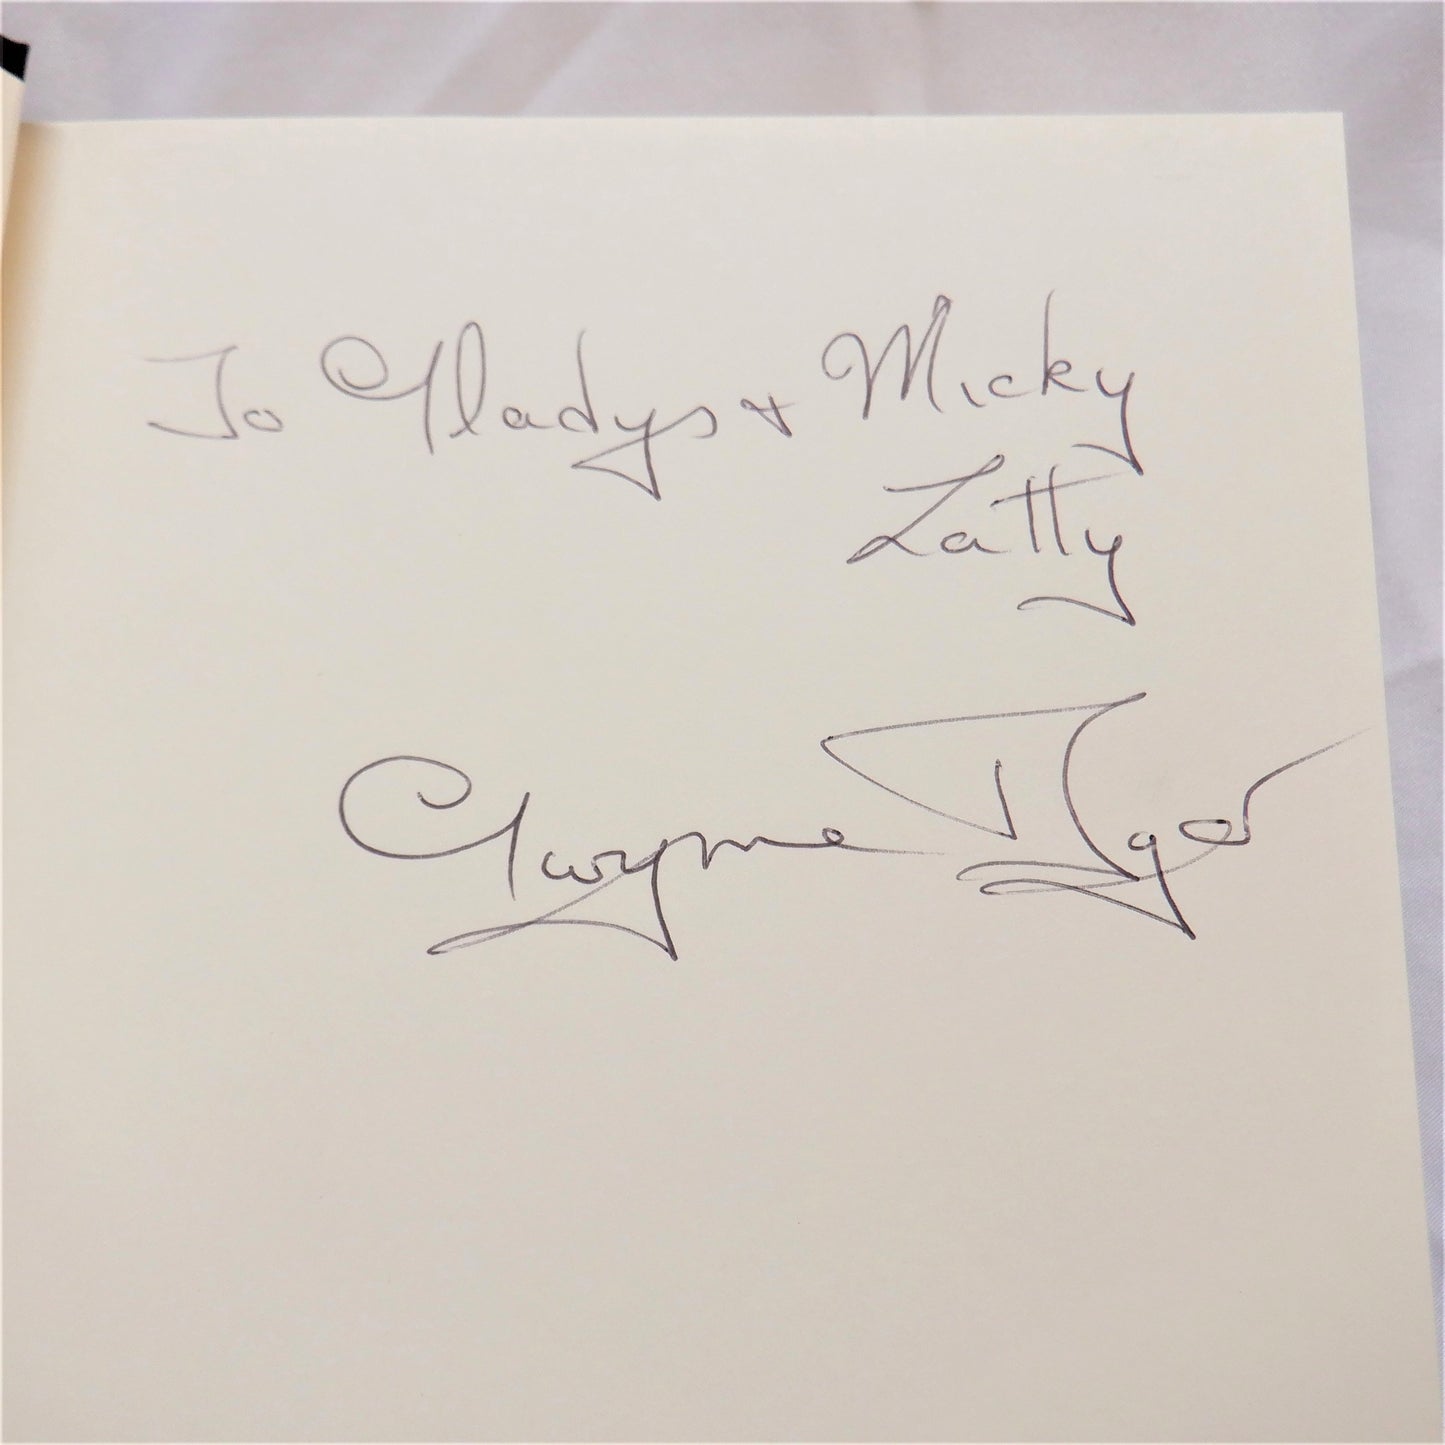 To Gladys & Micky
Latty
Gwynne Dyer